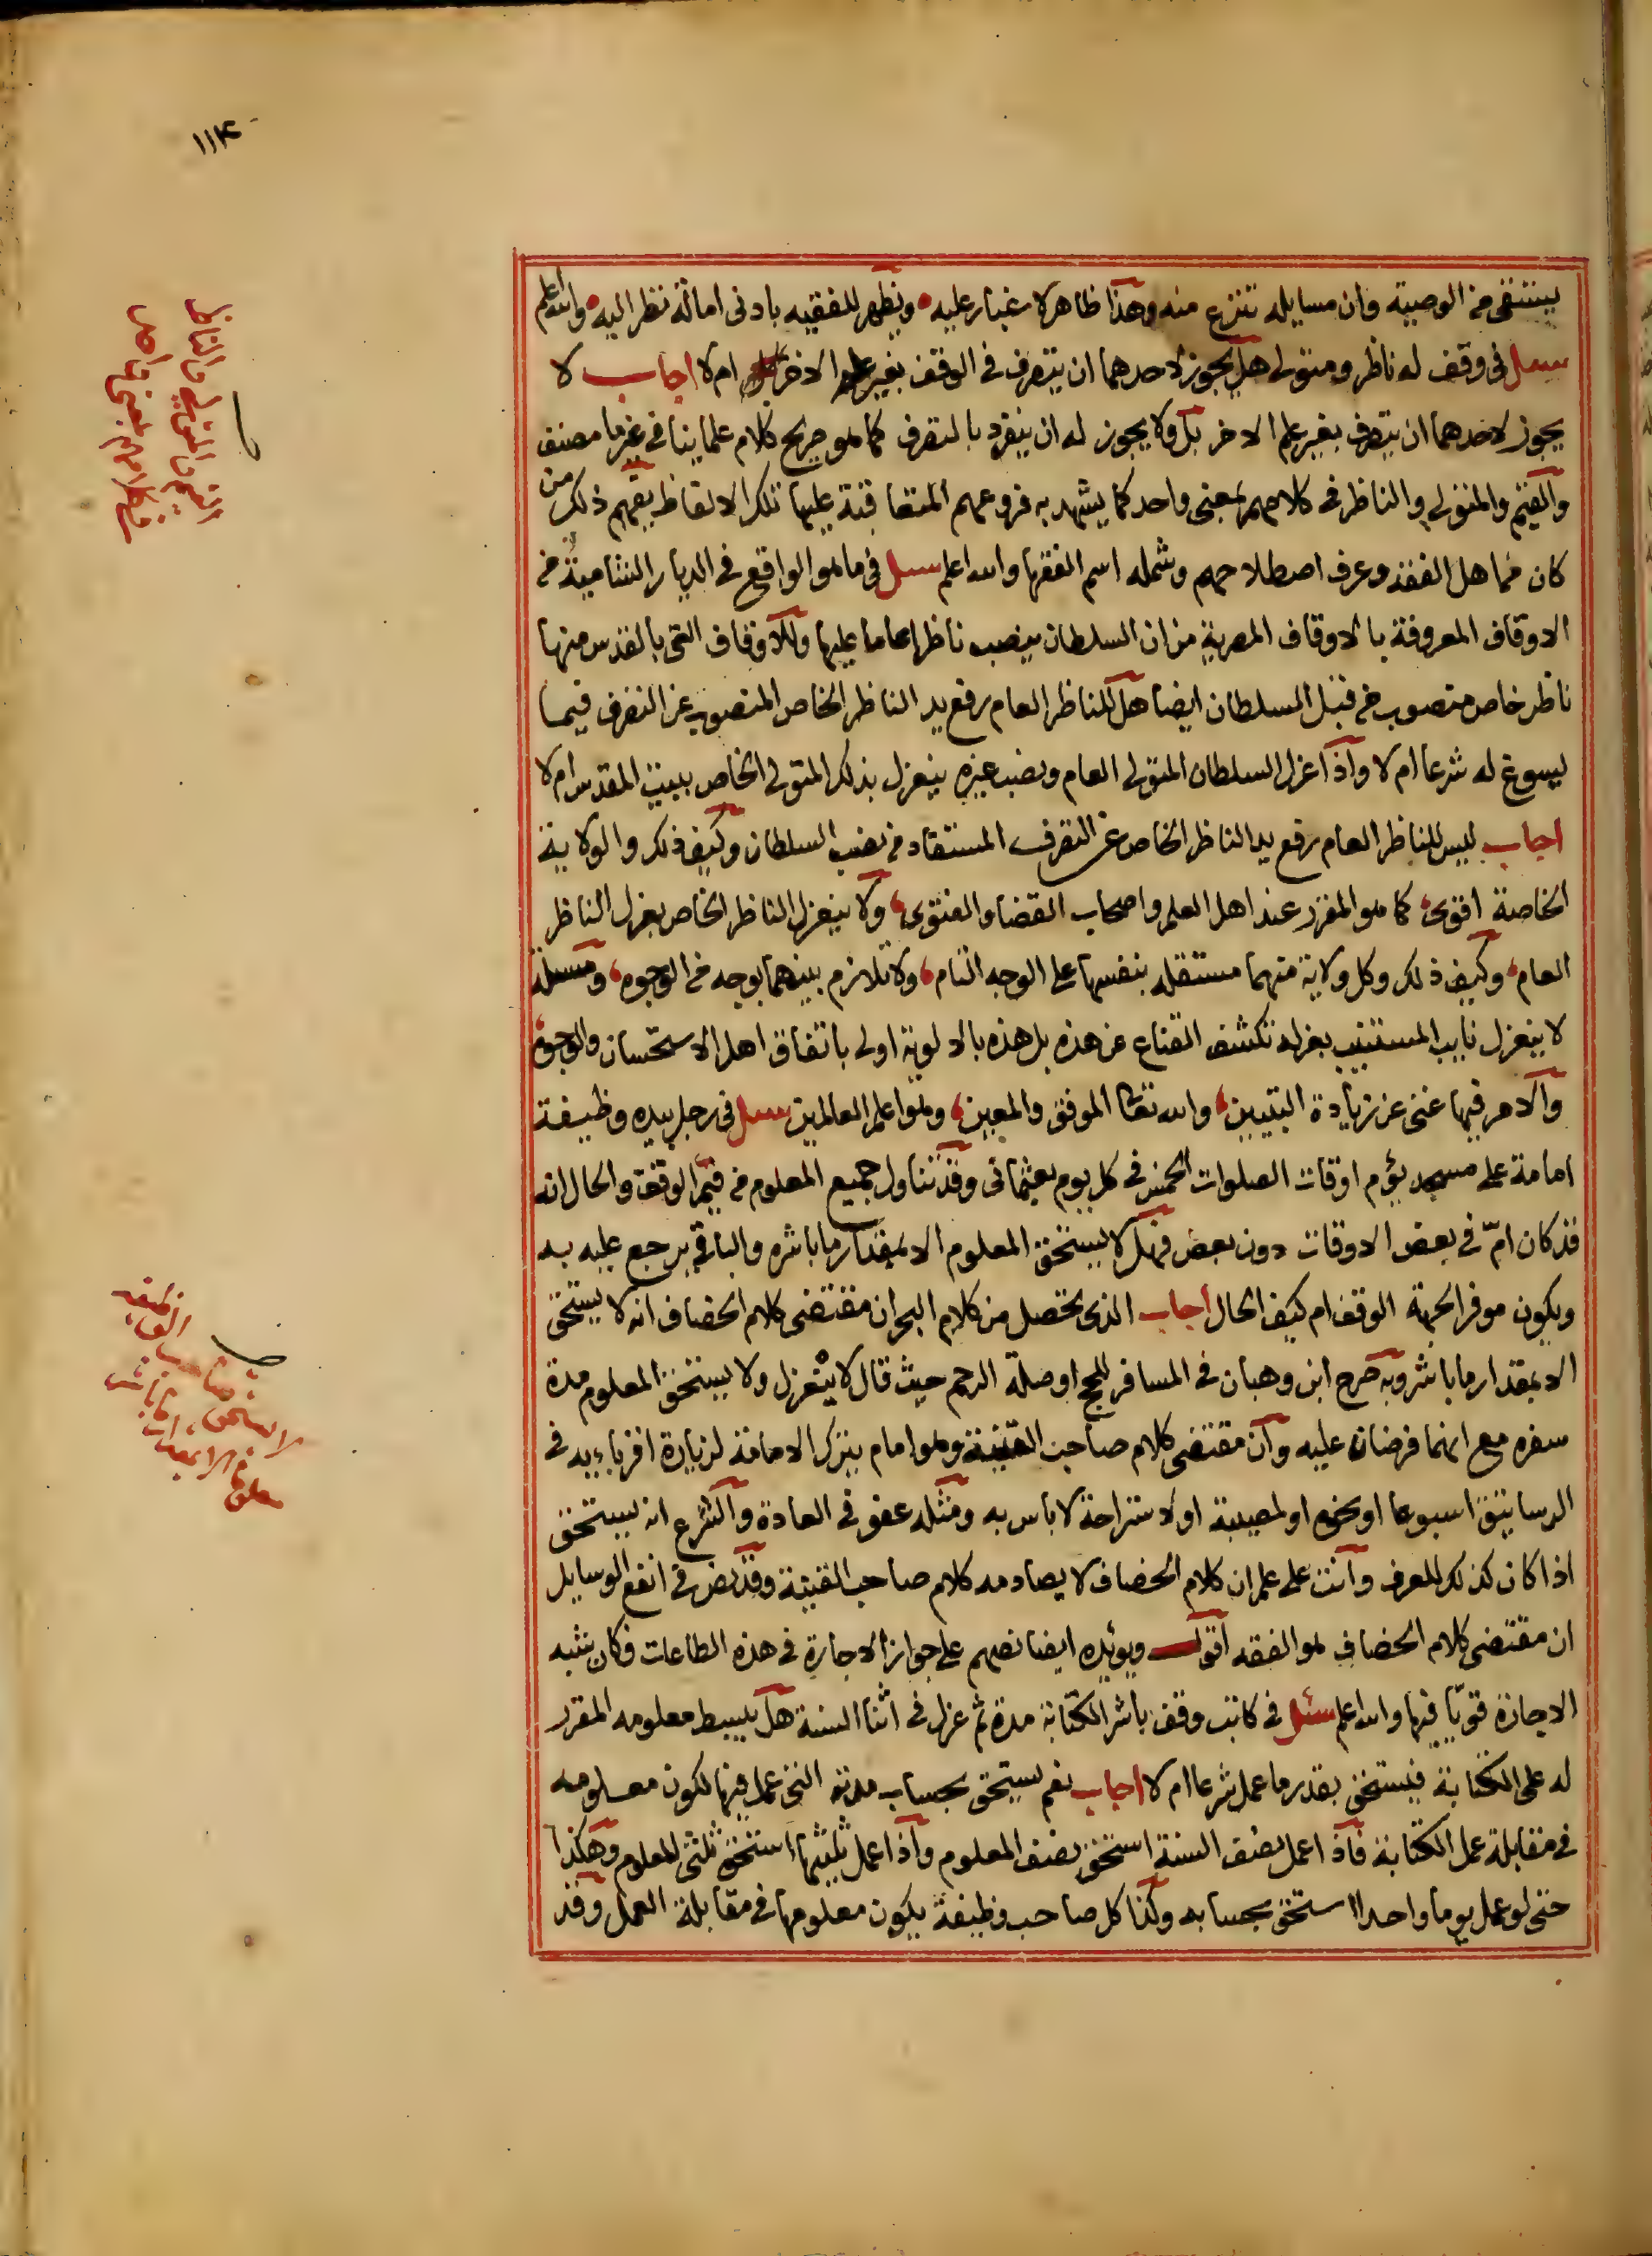 ١١٤
يستقى من الوصية وان مسايله تنتزع منه وهذا ظاهر لا غبار عليه ويظهر للفقيه بادنى امالة نظر اليه والله اعلم
سئل فى وقف له ناظر ومتولى هل يجوز لاحدهما ان يتصرف فى الوقف بغير علم الاخر ام لا اجاب لا
يجوز لاحدهما ان يتصرف بغير علم الاخر بل ولا يجوز له ان ينفرد بالتصرف كما هو صريح كلام علماينا فى غير ما مصنف
والقيم والمتولى والناظر فى كلامهم بمعنى واحد كما يشهد به فروعهم المتعاقبة عليها تلك الالفاظ يفهم ذلك من
كان من اهل الفقه وعرف اصطلاحهم وشمله اسم الفقها والله اعلم سئل فى ما هو الواقع فى الديار الشامية من
الاوقاف المعروفة بالاوقاف المصرية من ان السلطان ينصب ناظرا عاما عليها وللاوقاف التى بالقدس منها
ناظر خاص منصوب من قبل السلطان ايضا هل للناظر العام رفع يد الناظر الخاص المنصوب عن التصرف فيما
يسوغ له شرعا ام لا واذا عزل السلطان المتولى العام ونصب غيره ينعزل بذلك المتولى الخاص ببيت المقدس ام لا
اجاب ليس للناظر العام رفع يد الناظر الخاص عن التصرف المستفاد من نصب السلطان وكيف ذلك والولاية
الخاصة اقوى كما هو المقرر عند اهل العلم واصحاب القضا والفتوى ولا ينعزل الناظر الخاص بعزل الناظر
العام وكيف ذلك وكل ولاية منهما مستقله بنفسها على الوجه التام ولا تلازم بينهما بوجه من الوجوه ومسئلة
لا ينعزل نايب المستنيب بعزله تكشف القناع عن هذه بل هذه بالاولوية اولى باتفاق اهل الاستحسان والوجوه
والامر فيها غنى عن زيادة التبيين والله تعالى الموفق والمعين وهو اعلم العالمين سئل فى رجل بيده وظيفة
امامة على مسجد يؤم اوقات الصلوات الخمس فى كل يوم بعثمانى وقد تناول جميع المعلوم من قيم الوقف والحال انه
قد كان امّ فى بعض الاوقات دون بعض فهل لا يستحق المعلوم الا بمقدار ما باشره والباقى يرجع عليه به
ويكون موفرا لجهة الوقف ام كيف الحال اجاب الذى تحصل من كلام البحر ان مقتضى كلام الخصاف انه لا يستحق
الا بمقدار ما باشر وبه صرح ابن وهبان فى المسافر للحج او صلة الرحم حيث قال لا ينعزل ولا يستحق المعلوم مدة
سفره مع انهما فرضان عليه وان مقتضى كلام صاحب القنية وهو امام يترك الامامة لزيارة اقربايه فى
الرساتيق اسبوعا او نحوه او لمصيبة او لاستراحة لا باس به ومثله عفو فى العادة والشرع انه يستحق
اذا كان كذلك للعرف وانت على علم ان كلام الخصاف لا يصادمه كلام صاحب القنية وقد نص فى انفع الوسايل
ان مقتضى كلام الخصاف هو الفقه اقول ويؤيده ايضا نصهم على جواز الاجارة فى هذه الطاعات فكان شبه
الاجارة قويّا فيها والله اعلم سئل فى كاتب وقف باشر الكتابة مدة ثم عزل فى اثنا السنة هل يبسط معلومه المقرر
له على الكتابة فيستحق بقدر ما عمل شرعا ام لا اجاب نعم يستحق بحساب مدته التى عمل فيها لكون معلومه
فى مقابلة عمل الكتابة فاذا عمل نصف السنة استحق نصف المعلوم واذا عمل ثلثيها استحق ثلثى المعلوم وهكذا
حتى لو عمل يوما واحدا استحق بحسابه وكذا كل صاحب وظيفة يكون معلومها فى مقابلة العمل وقد
لا يستحق صاحب الوظيفة
معلوما الا بمقدار ما باشر